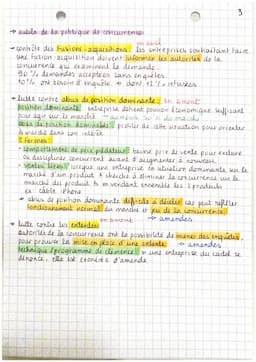 3
→ outils de la politique de concurrence:
en amont
- contrôle des fusions-acquisitions : les entreprises souhaitant faire
une fusion-acquisition doivent informer les autorités de la
concurrence qui examinent la demande.
90 % demandes acceptées sans enquêtes
10 % ont besoin d'enquête → dont ±2% refusées
- lutte contre abus de position dominante : en amont
position dominante : entreprise détient pouvoir économique suffisant
pour agir sur le marché
abus de position dominante : profiter de cette situation pour orienter
le marché dans son intérêt
2 formes :
- comportement de prix prédateur : baisse prix de vente pour exclure
ou discipliner concurrent avant d'augmenter à nouveau
- ventes liées : lorsque une entreprise en situation dominante sur le
marché d'un produit 1 cherche à éliminer la concurrence sur le
marché du produit 2 en vendant ensemble les 2 produits
ex : câble iPhone
→ abus de position dominante difficile à déceler car peut refléter
fonctionnement normal du marché et jeu de la concurrence.
→ amendes
- lutte contre les ententes
en amont
autorités de la concurrence ont la possibilité de mener des enquêtes
pour prouver la mise en place d'une entente → amendes
technique / programme de clémence : si une entreprise du cartel se
dénonce, elle est exonérée d'amende